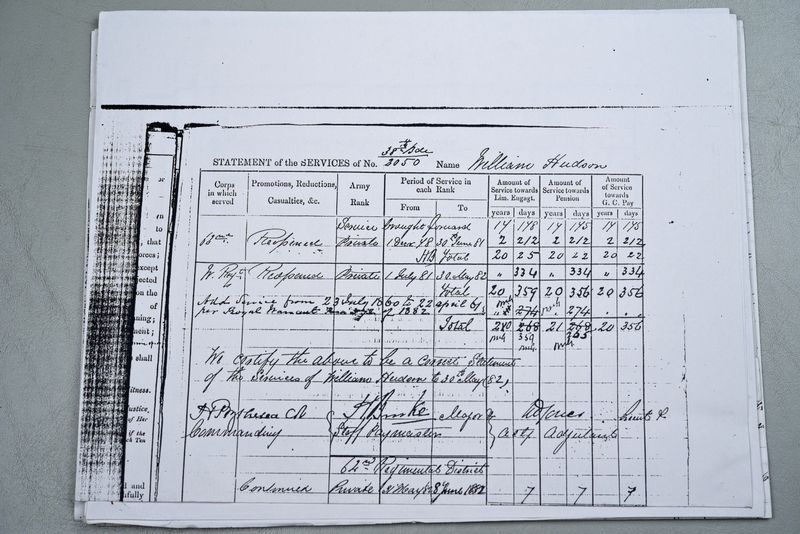 38th Bde
STATEMENT of the SERVICES of No. 3050 Name William Hudson
Corps in which served
Promotions, Reductions, Casualties, &c.
Army Rank
Period of Service in each Rank
From To
Amount of Service towards Lim. Engagt.
years days
Amount of Service towards Pension
years days
Amount of Service towards G. C. Pay
years days
Service brought forward 17 178 17 175 17 175
62nd Private 30 June 81 2 212 2 212 2 212
Total 20 25 20 22 20 22
W. Regt Private 1 July 81 30 May 82 " 334 " 334 " 334
Total 20 359 20 356 20 356
Add Service from 23 July 1860 to 22 April 61 " 274 " 274 . .
per Royal Warrant of 1882
Total 21 20 356
359 265
We certify the above to be a Correct Statement
of the Services of William Hudson to 30th May 82,
Major
Commanding Staff Paymaster Actg Adjutant
62nd Regimental District
Continued Private 31 May 82 8 June 1882 7 7 7
, that
orces;
except
ected
on the
of
ning;
ment;
shall
itness.
Justice,
of Her
if the
ch Ten
d and
ifully